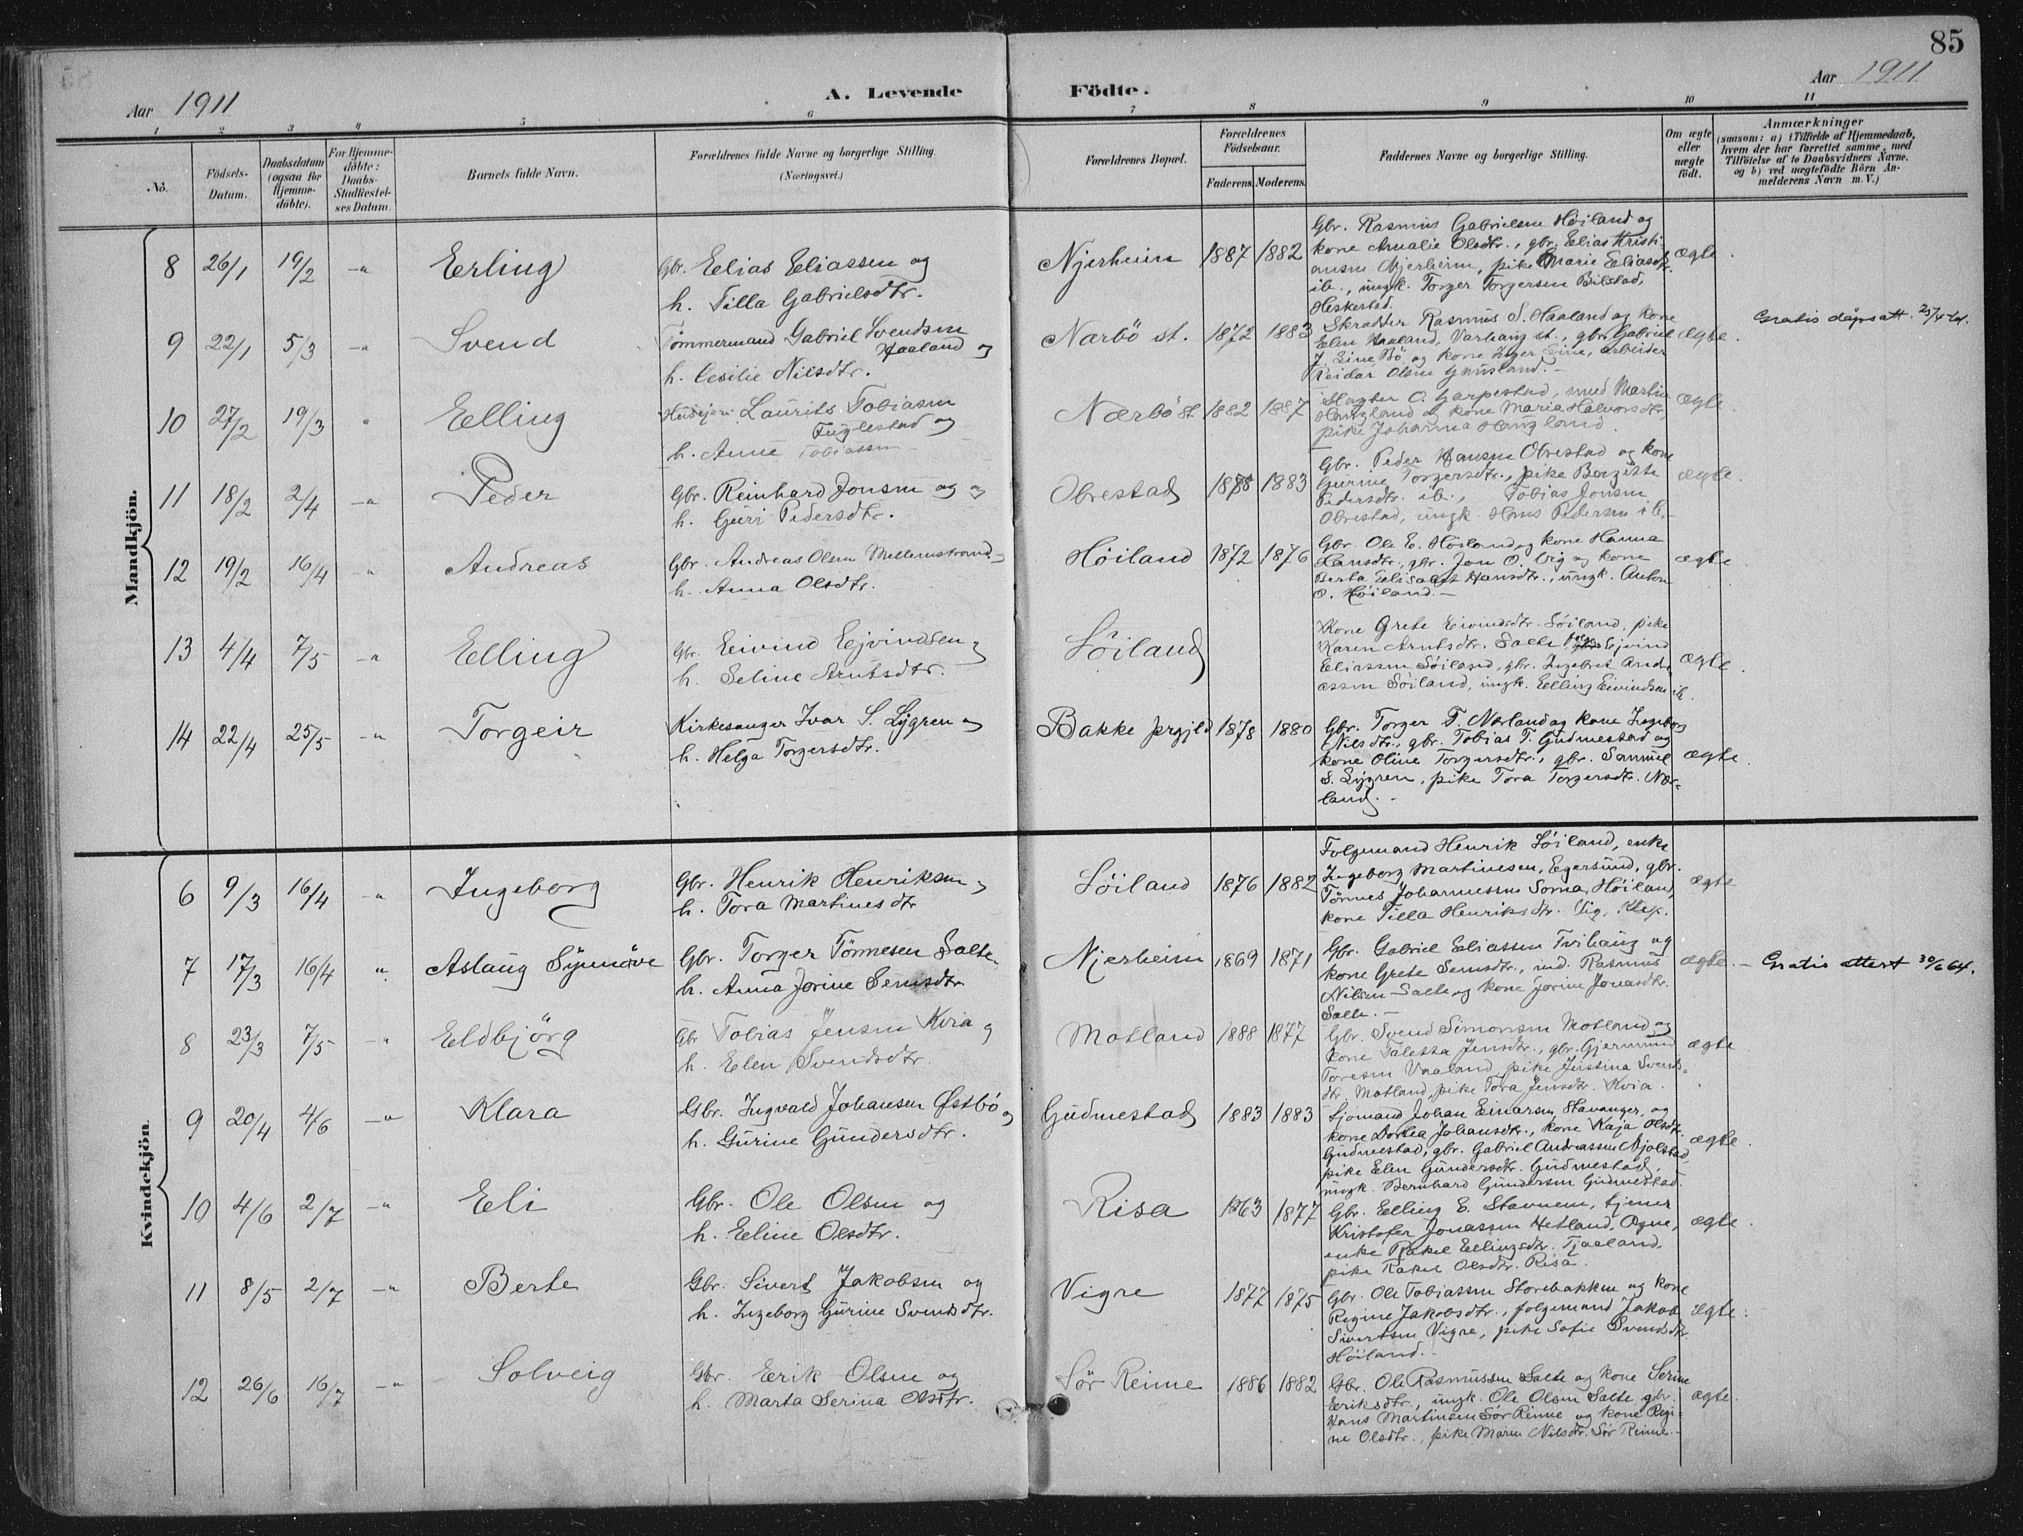 85
Aar 1911
A. Levende
Födte.
Aar 1911
1 2 3 4 5 6 7 8 9 10 11
No.
Födsels-Datum.
Daabsdatum (ogsaa för Hjemme-döbte).
For Hjemme-döbte: Daabs-Stadfæstel-ses Datum.
Barnets fulde Navn.
Forældrenes fulde Navne og borgerlige Stilling.
(Næringsvei.)
Forældrenes Bopæl.
Forældrenes Födselsaar.
Faderens. Moderens.
Faddernes Navne og borgerlige Stilling.
Om ægte eller uægte födt.
Anmærkninger
(saasom: a) i Tilfælde af Hjemmedaab, hvem der har forrettet samme, med Tilföielse af to Daabsvidners Navne, og b) ved uægtefödte Börn Anmelderens Navn m. V.)
Mandkjön.
8 26/1 19/2 -"- Erling
Gbr. Elias Eliassen og
h. Tilla Gabrielsdtr.
Njerheim 1887 1882
Gbr. Rasmus Gabrielsen Høiland og
kone Amalie Olsdtr., gbr. Elias Kristi-
ansen Njerheim, pike Marie Eliasdtr.
ib., ungk. Torger Torgersen Bilstad,
Heskestad.
ægte.
9 22/1 5/3 -"- Svend
Tømmermand Gabriel Svendsen
Haaland og
h. Cecilie Nilsdtr.
Nærbö st. 1872 1883
Skrædder Rasmus S. Haaland og kone
Elen Haaland, Varhaug st., gbr. Gabriel
J. Line Bö og kone Inger Line, arbeider
Reidar Olsen Gausland.-
ægte.
Gratis dåpsatt. 25/4 61.
10 27/2 19/3 " Elling
Laurits Tobiasen
Fuglestad og
h. Anne Tobiassen
Nærbö st 1882 1887
Slagter O. Garpestad, smed Martin
Haugland og kone Maria Halvorsdtr,
pike Johanna Haugland.
ægte.
11 18/2 2/4 -"- Peder
Gbr. Reinhard Jonsen og
h. Guri Pedersdtr.
Obrestad 1878 1883
Gbr. Peder Hansen Obrestad og kone
Gurine Torgersdtr., pike Bergitte
Pedersdtr. ib., Tobias Jonsen
Obrestad, ungk. Hans Pedersen ib.-
ægte.
12 19/2 16/4 -"- Andreas
Gbr. Andreas Olsen Mellemstrand
h. Anna Olsdtr.
Høiland 1872 1876
Gbr. Ole E. Høiland og kone Hanna
Hansdtr., gbr. Jon O. Vig og kone
Berta Elisabet Hansdtr., ungk. Anton
O. Høiland.-
ægte.
13 4/4 7/5 -"- Elling
Gbr. Eivind Ejvindsen og
h. Seline Arntsdtr.
Söiland
Kone Grete Eivindsdtr. Söiland, pike
Karen Arntsdtr. Salte, Ejvind
Eliassen Söiland, gbr. Ingebret Andre-
assen Söiland, ungk. Elling Eivindsen ib.
ægte.
14 22/4 25/5 -"- Torgeir
Kirkesanger Ivar S. Lygren og
h. Helga Torgersdtr.
Bakke prgjld 1878 1880
Gbr. Torger T. Nærland og kone Ingeborg
Nilsdtr., gbr. Tobias T. Gudmestad og
kone Oline Torgersdtr., gbr. Samuel
S. Lygren, pike Tora Torgersdtr. Nær-
land.-
ægte.
Kvindekjön.
6 9/3 16/4 -"- Ingeborg
Gbr. Henrik Henriksen og
h. Tora Martinesdtr
Söiland 1876 1882
Folgemand Henrik Söiland, enke
Ingeborg Martinesen, Egersund, gbr.
Tönnes Johannessen Soma, Høiland,
kone Tilla Henriksdtr. Vig, Klep.
ægte
7 17/3 16/4 " Aslaug Synnøve
Gbr. Torger Tönnesen Salte og
h. Anna Jorine Semsdtr.
Njerheim 1869 1871
Gbr. Gabriel Eliassen Tvihaug og
kone Grete Semsdtr., ind. Rasmus
Nilsen Salte og kone Jorine Jonasdtr.
Salte.-
ægte.
Gratis attest 30/6 64.
8 23/3 7/5 -"- Eldbjörg
Gbr Tobias Jensen Kvia og
h. Elen Svendsdtr
Motland 1888 1877
Gbr. Svend Simonsen Motland og
kone Taletta Jensdtr., gbr. Gjermund
Toresen Vaaland, pike Justina Svends-
dtr. Motland, pike Tora Jensdtr. Kvia.
ægte
9 20/4 4/6 -"- Klara
Gbr. Ingvald Johansen Østbö og
h. Gurine Gundersdtr.
Gudmestad 1883 1883
Sjömand Johan Einarsen, Stavanger, og
kone Dortea Johansdtr., kone Kaja Olsdtr.
Gudmestad, gbr. Gabriel Andreassen Njolstad,
pike Elen Gundersdtr. Gudmestad,
ungk. Bernhard Gundersen Gudmestad.
ægte.
10 4/6 2/7 -"- Eli
Gbr. Ole Olsen og
h. Eline Olsdtr.
Risa 1863 1877
Gbr. Elling E. Stavnem, tjener
Kristofer Jonassen Hetland, Ogne,
enke Rakel Ellingsdtr. Tjaaland,
pike Rakel Olsdtr. Risa.
ægte.
11 8/5 2/7 -"- Berte
Gbr. Sivert Jakobsen og
h. Ingeborg Gurine Svendsdtr.
Vigre 1877 1875
Gbr. Ole Tobiassen Storebakken og kone
Regine Jakobsdtr., folgemand Jakob
Sivertsen Vigre, pike Sofie Svendsdtr
Høiland.-
ægte.
12 26/6 16/7 -"- Solveig
Gbr. Erik Olsen og
h. Marta Serina Olsdtr.
Sör Reime 1886 1882
Gbr. Ole Rasmussen Salte og kone Serine
Eriksdtr., ungk. Ole Olsen Salte, gbr.
Hans Martinsen Sör Reime og kone Regi-
ne Olsdtr., pike Maren Nilsdtr. Sör Reime.-
ægte.